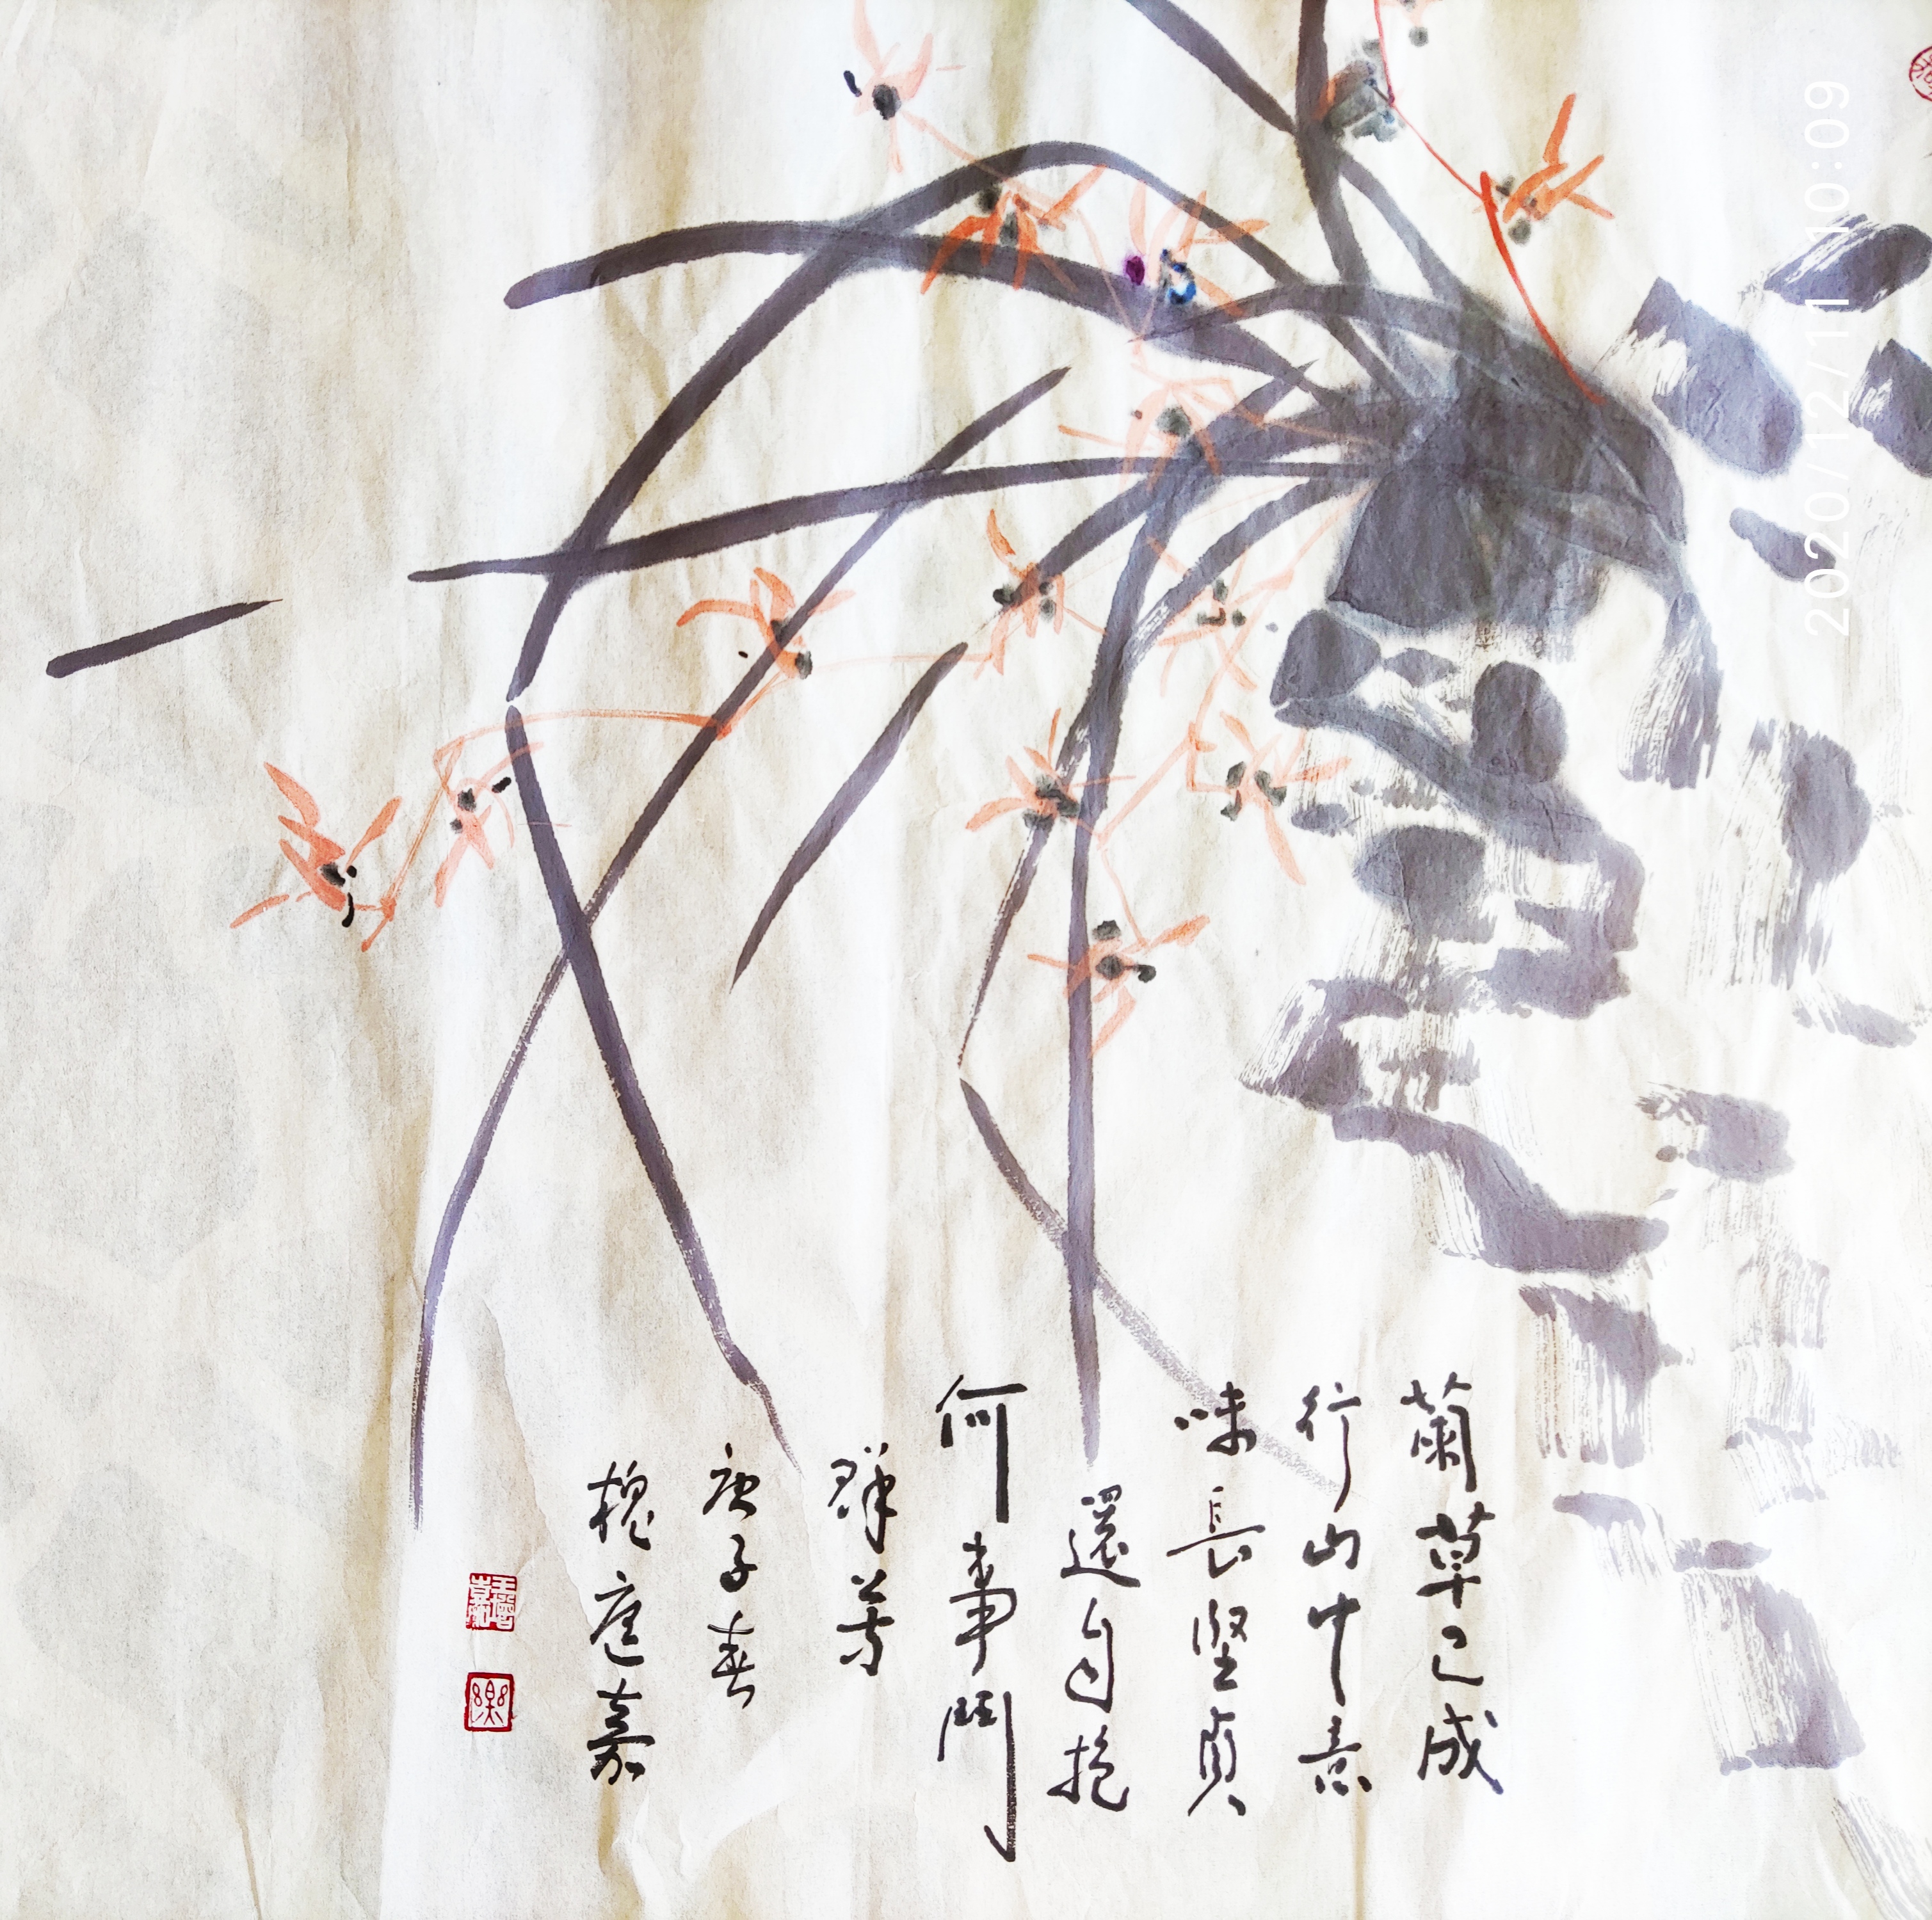 蘭草已成
行山中意
味長堅貞
還自抱
何事鬥
群芳
庚子春
槐庭嘉
2020/12/11 10:09